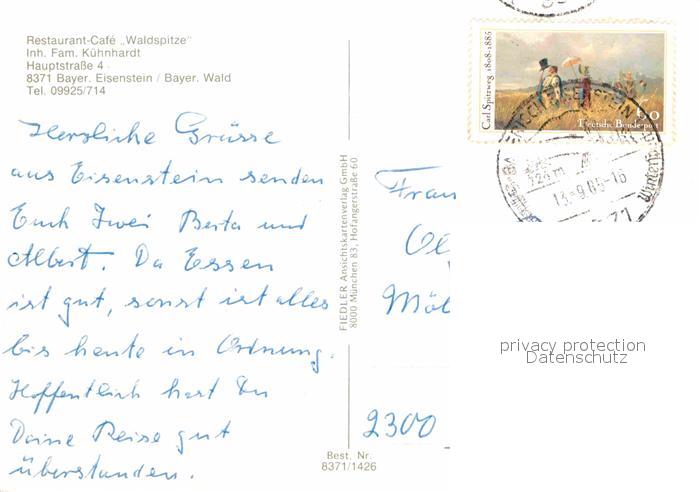 Restaurant-Café „Waldspitze"
Inh. Fam. Kühnhardt
Hauptstraße 4
8371 Bayer. Eisenstein / Bayer. Wald
Tel. 09925/714
Herzliche Grüsse
aus Eisenstein senden
Euch Zwei Berta und
Albert. Da Essen
ist gut, sonst ist alles
bis heute in Ordnung.
Hoffentlich hast Du
Deine Reise gut
überstanden.
FIEDLER Ansichtskartenverlag GmbH
8000 München 83, Hofangerstraße 60
Best. Nr.
8371/1426
Carl Spitzweg 1808-1885
60
Deutsche Bundespost
13.-9.85-16
Frau
2300
privacy protection
Datenschutz